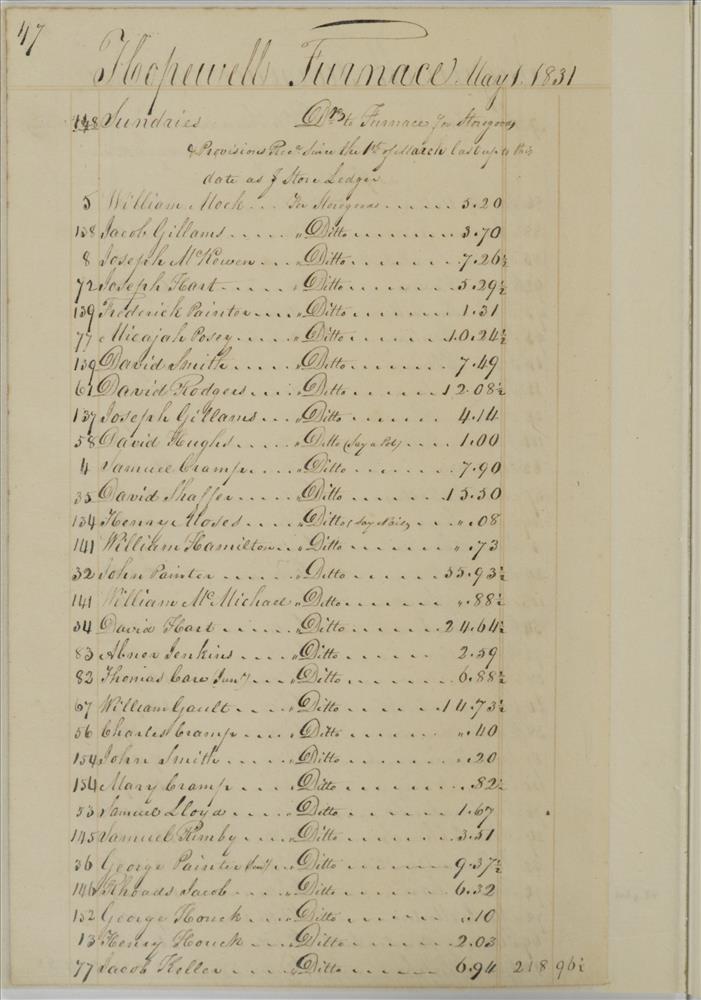 47
Hopewell Furnace May 1. 1831
148 Sundries Drs to Furnace for Storegoods
& Provisions Recd Since the 1st of March last up to this
date as p Store Ledger
5 William Mock .... For Storegoods ...... 5.20
138 Jacob Gillams ..... " Ditto ........ 3.70
8 Joseph McKewen ... " Ditto ....... 7.26½
72 Joseph Hart ..... " Ditto ....... 5.29½
139 Frederick Painter ... " Ditto ....... 1.31
77 Micajah Posey .... " Ditto ...... 10.24½
139 David Smith ..... " Ditto ....... 7.49
61 David Rodgers .... " Ditto ...... 12.08½
137 Joseph Gillams ... " Ditto ....... 4.14
58 David Hughs .... " Ditto (Say a Pot) .... 1.00
4 Samuel Cramp .... " Ditto ....... 7.90
35 David Shaffer ..... " Ditto ...... 15.50
134 Henry Moses .... " Ditto (Say Nails) ... " .08
141 William Hamilton .. " Ditto ...... " .73
32 John Painter ...... " Ditto ...... 35.93½
141 William McMichael " Ditto ....... " .88½
34 David Hart ...... " Ditto ...... 24.64½
83 Abner Jenkins .... " Ditto ...... 2.59
82 Thomas Care Junr) .... " Ditto ...... 6.88½
67 William Gault .... " Ditto ...... 14.73½
56 Charles Cramp ... " Ditto ...... " .40
154 John Smith ..... " Ditto ...... " .20
154 Mary Cramp .... " Ditto ........ .82½
53 Samuel Lloyd .... " Ditto ...... 1.67
145 Samuel Kimby .... " Ditto ...... 3.51
36 George Painter (Junr) .. " Ditto ...... 9.37½
146 Rhoads Jacob .... " Ditto ...... 6.32
132 George Houck .... " Ditto ...... " .10
13 Henry Houck .... " Ditto ...... 2.03
77 Jacob Keller ..... " Ditto ...... 6.94 218 96½